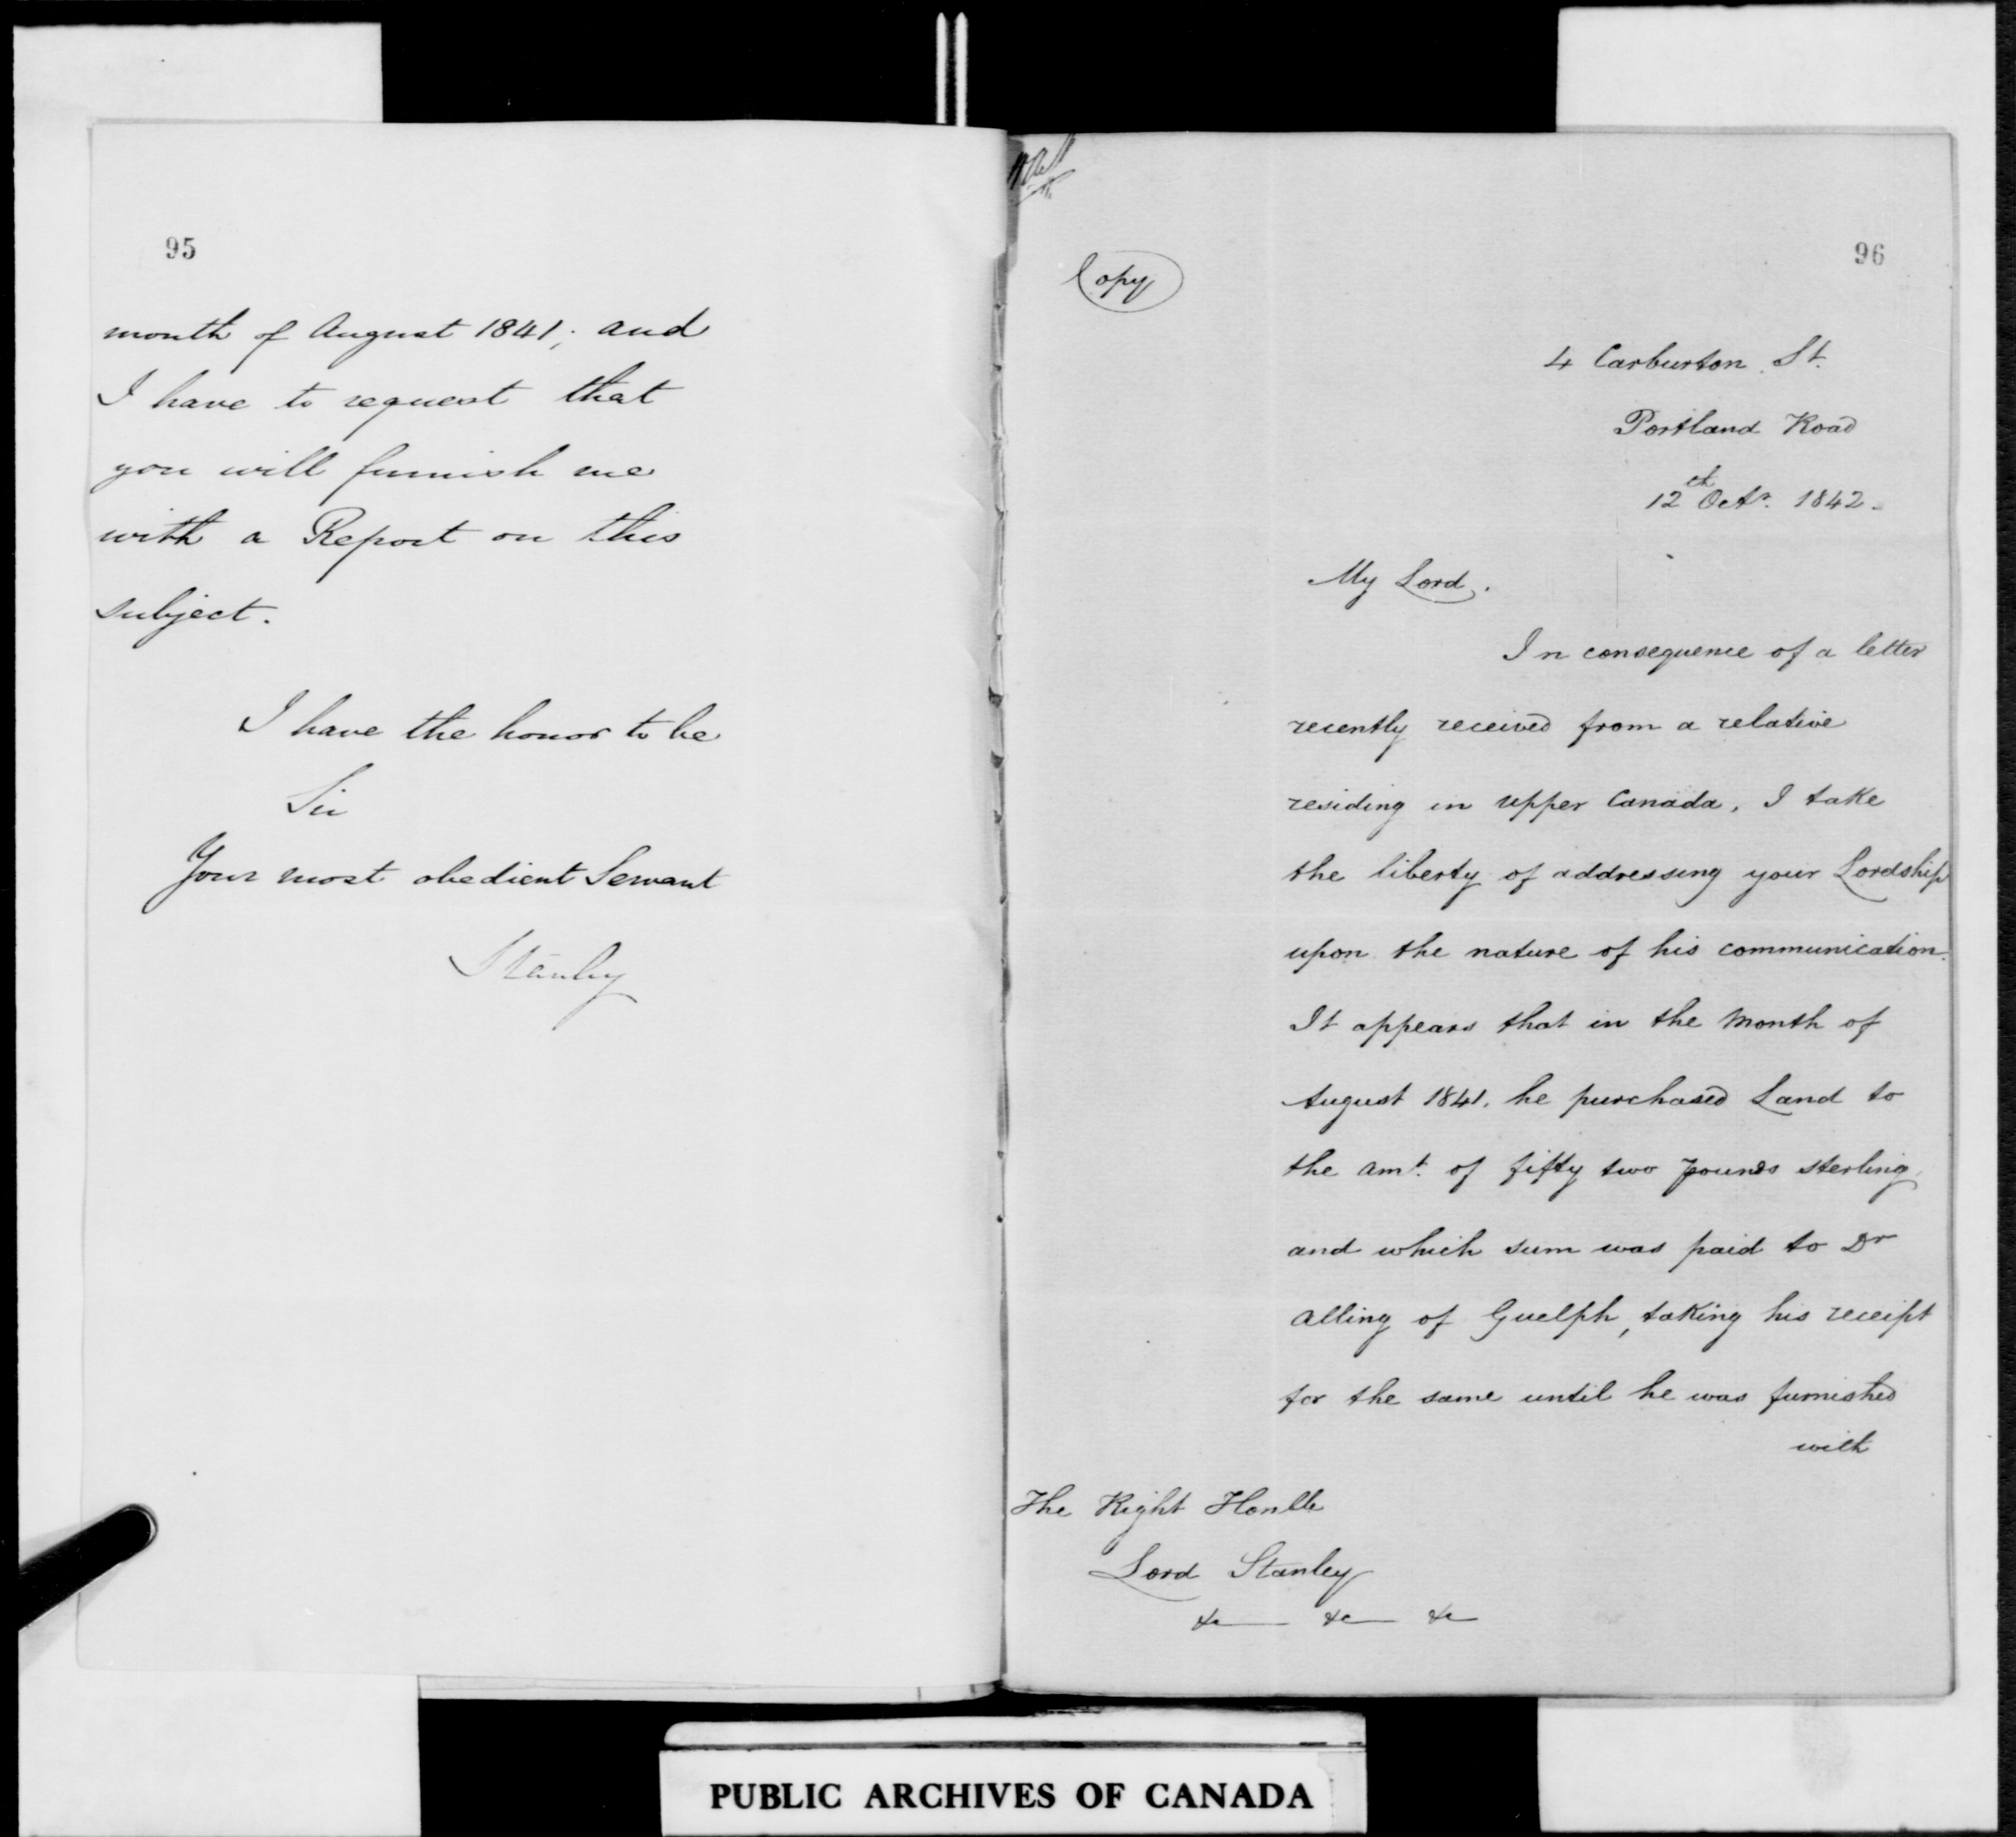 95
month of August 1841; and
I have to request that
you will furnish me
with a Report on this
subject.
I have the honor to be
Sir
Your most obedient Servant
Stanley
96
Copy
4 Carburton St.
Portland Road
12th Octr. 1842.
My Lord.
In consequence of a letter
recently received from a relative
residing in upper Canada, I take
the liberty of addressing your Lordship
upon the nature of his communication.
It appears that in the Month of
August 1841. he purchased Land to
the amt. of fifty two pounds sterling
and which sum was paid to Dr
Alling of Guelph, taking his receipt
for the same until he was furnished
with
The Right Honble
Lord Stanley
&c &c &c
PUBLIC ARCHIVES OF CANADA